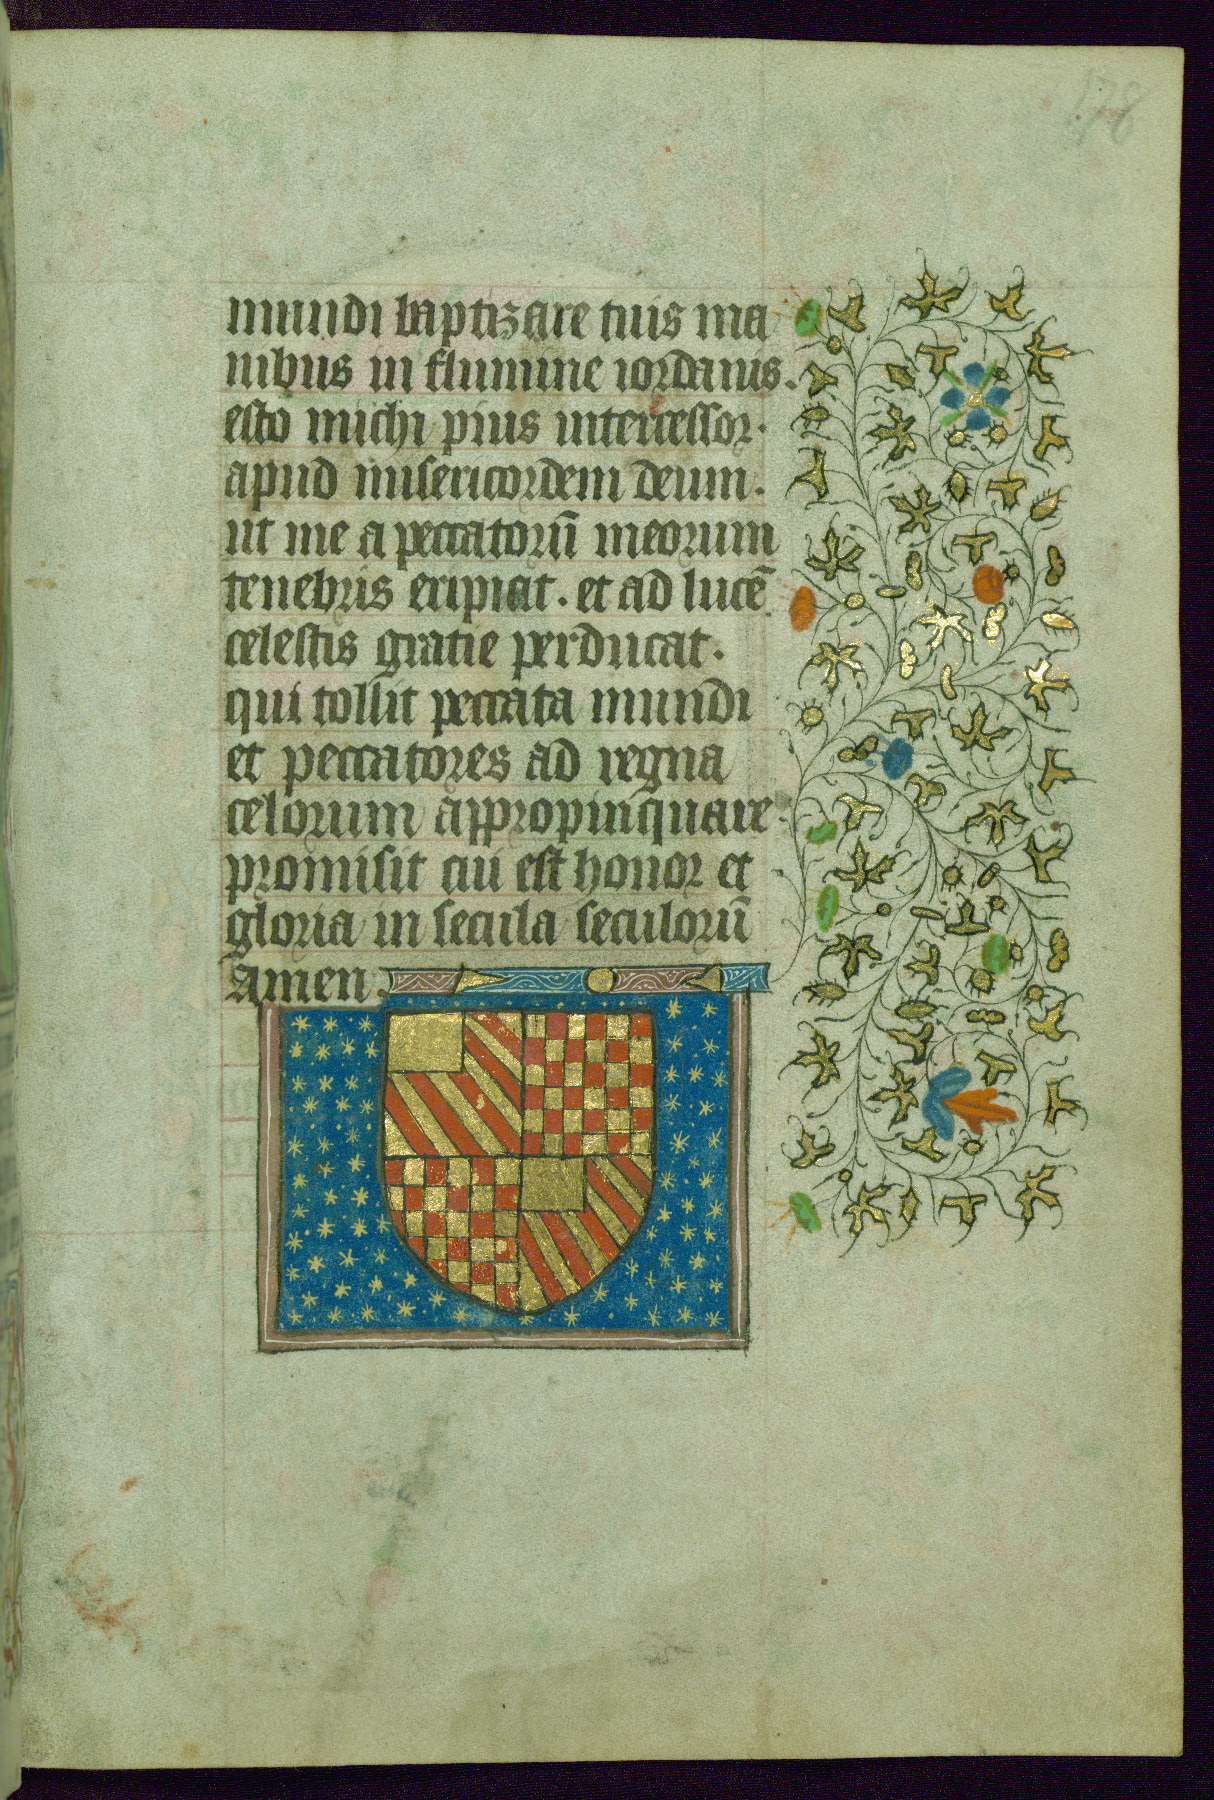 178
mundi baptizare tuis ma
nibus in flumine iordanis.
esto michi pius intercessor.
apud misericordem deum.
ut me a peccatorū meorum
tenebris eripiat. et ad lucē
celestis gratie perducat.
qui tollit peccata mundi
et peccatores ad regna
celorum appropinquare
promisit cui est honor et
gloria in secula seculorū
Amen.